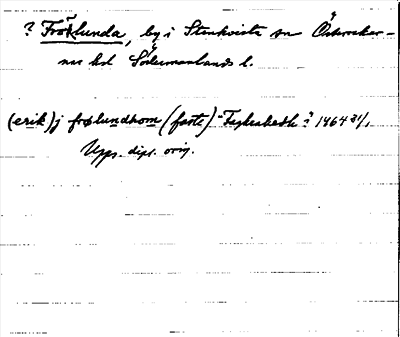 ? Fröslunda, by i Stenkvista sn Österreker-
ne hd Södermanlands l.
(erik) j froslundhom (faste) Fagherbærk ? 1464 31/1
Upps. dipl. orig.